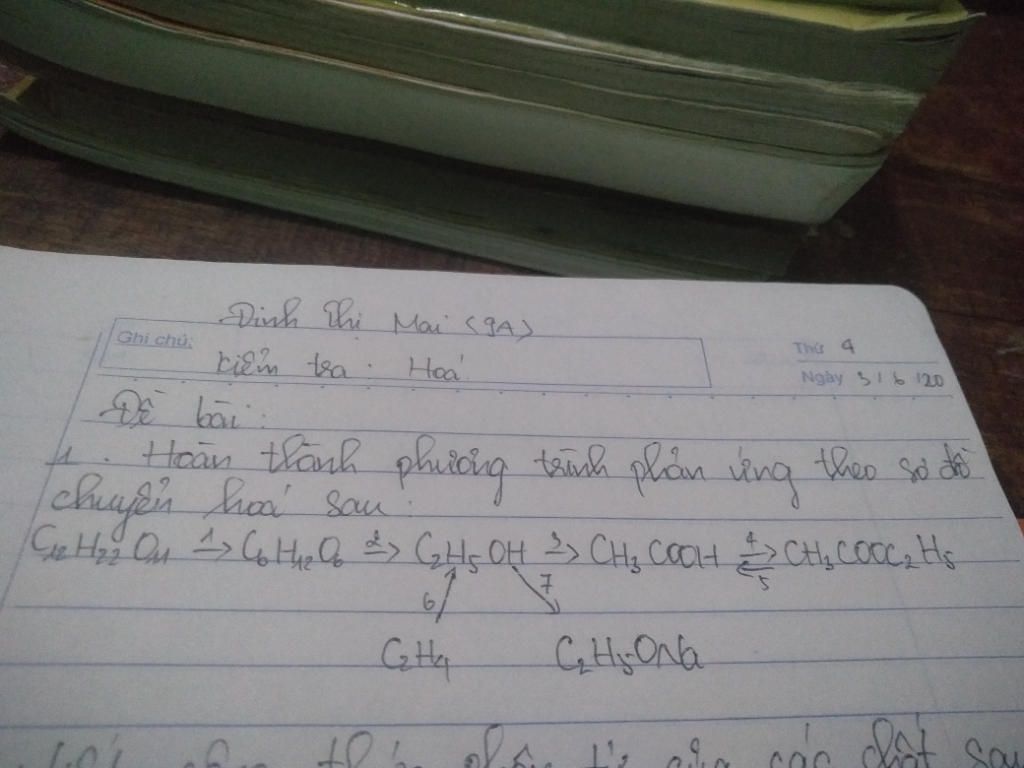 Đinh Thị Mai (9A)
Ghi chú:
Kiểm tra. Hoá.
Thứ 4
Ngày 3/6/20
Đề bài:
1. Hoàn thành phương trình phản ứng theo sơ đồ
chuyển hoá sau:
C12H22O11 1→ C6H12O6 2→ C2H5OH 3→ CH3COOH 4⇌5 CH3COOC2H5
6 7
C2H4 C2H5ONa
các chất sau